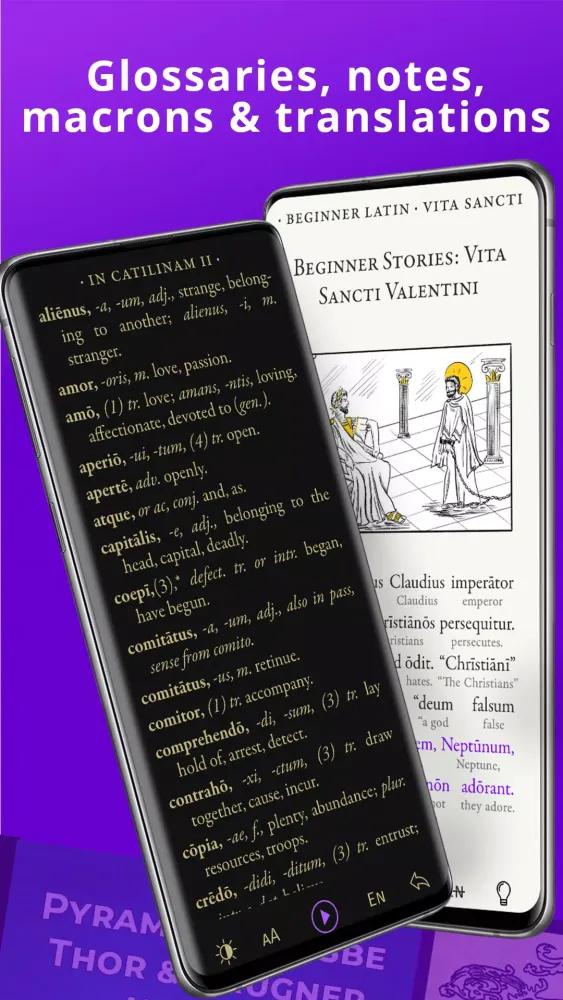 Glossaries, notes,
macrons & translations
· IN CATILINAM II ·
aliēnus, -a, -um, adj., strange, belong-
ing to another; alienus, -i, m.
stranger.
amor, -oris, m. love, passion.
amō, (1) tr. love; amans, -ntis, loving,
affectionate, devoted to (gen.).
aperiō, -ui, -tum, (4) tr. open.
apertē, adv. openly.
atque, or ac, conj. and, as.
capitālis, -e, adj., belonging to the
head, capital, deadly.
coepī,(3),* defect. tr. or intr. began,
have begun.
comitātus, -a, -um, adj., also in pass,
sense from comito.
comitātus, -us, m. retinue.
comitor, (1) tr. accompany.
comprehendō, -di, -sum, (3) tr. lay
hold of, arrest, detect.
contrahō, -xi, -ctum, (3) tr. draw
together, cause, incur.
cōpia, -ae, f., plenty, abundance; plur.
resources, troops.
crēdō, -didi, -ditum, (3) tr. entrust;
AA
EN
· BEGINNER LATIN · VITA SANCTI
BEGINNER STORIES: VITA
SANCTI VALENTINI
Claudius imperātor
Claudius emperor
persequitur.
persecutes.
ōdit. “Chrīstiānī”
hates. “The Christians”
“deum falsum
“a god false
Neptūnum,
Neptune,
nōn adōrant.
they adore.
THOR &